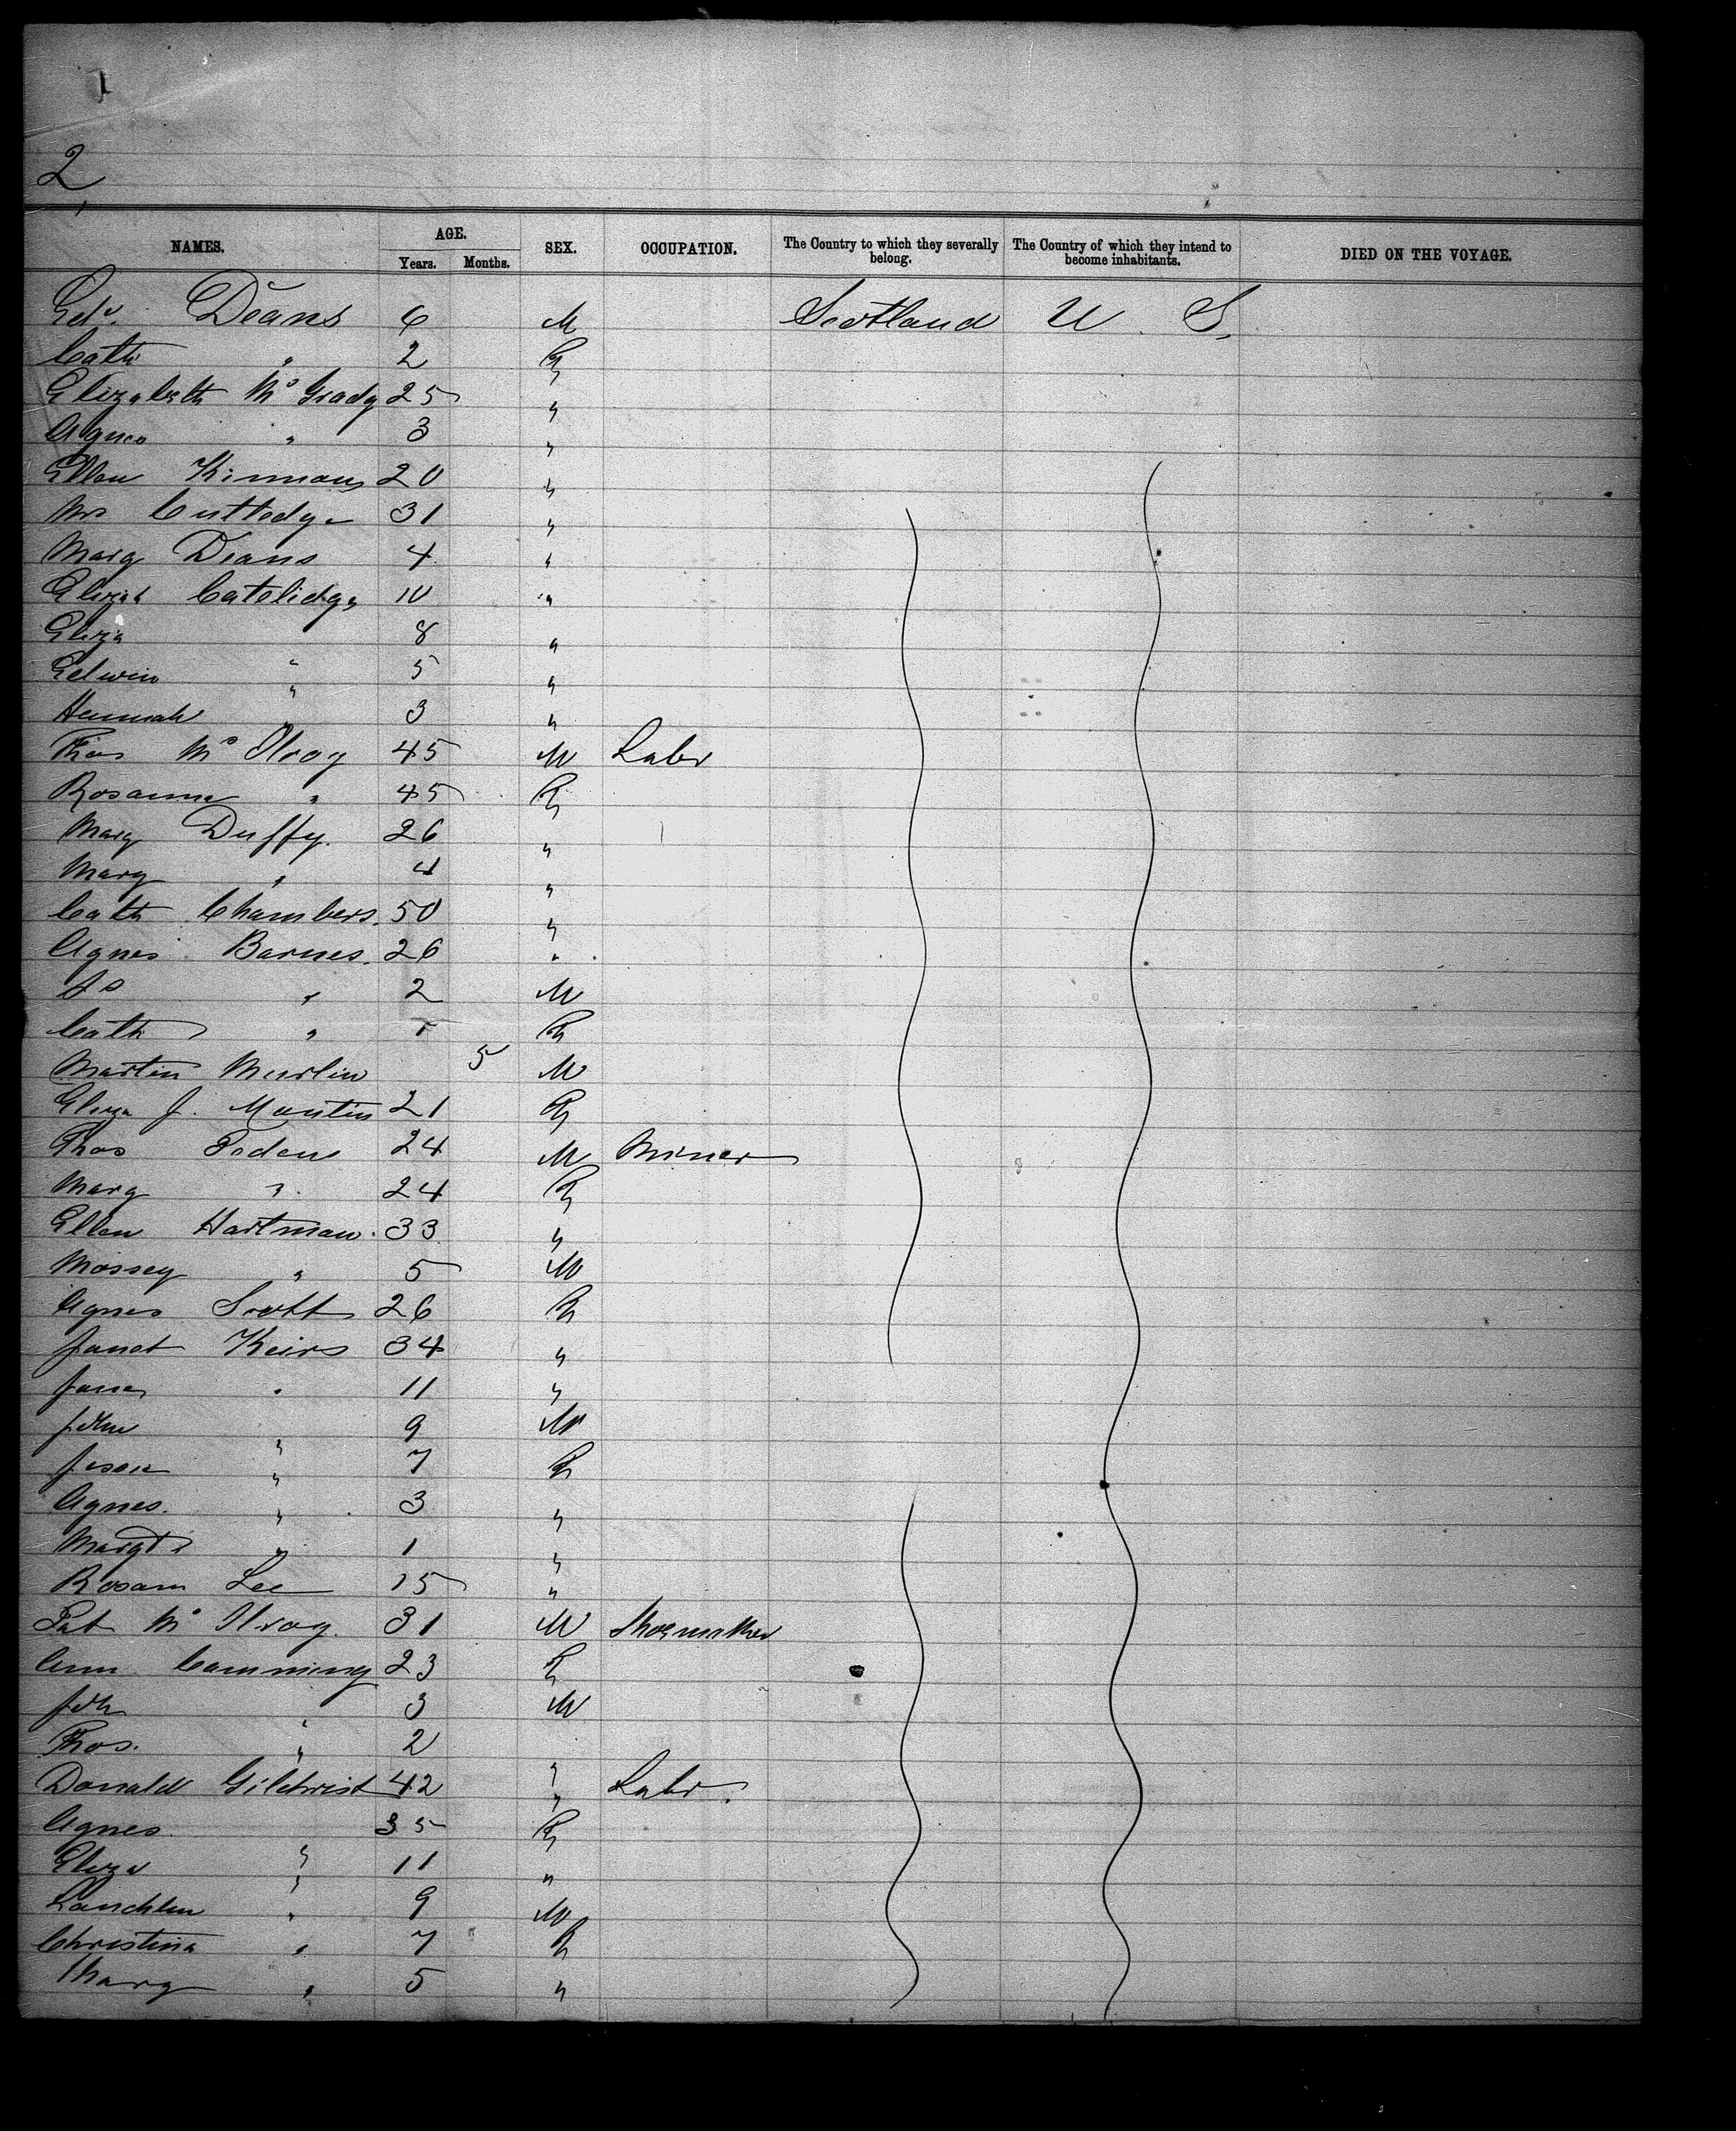 1
2
NAMES. AGE. SEX. OCCUPATION. The Country to which they severally belong. The Country of which they intend to become inhabitants. DIED ON THE VOYAGE.
Years. Months.
Edw. Deans 6 M Scotland U. S.
Cath " 2 F
Elizabeth McGrady 25 "
Agnes " 3 "
Ellen Kinnon 20 "
Mrs Cuttedge 31 "
Marg Deans 4 "
Elizah Catelidge 10 "
Eliza " 8 "
Edwin " 5 "
Hannah 3 "
Thos McIlroy 45 M Labr
Rosanna " 45 F
Marg Duffy. 26 "
Marg " 4 "
Cath Chambers. 50 "
Agnes Barnes. 26 "
Js " 2 M
Cath " 1 F
Martin Murlin 5 M
Eliza J. Martin 21 F
Thos Feden 24 M Miner
Marg " 24 F
Ellen Hartman. 33 "
Mossey " 5 M
Agnes Scott 26 F
Janet Keirs 34 "
Jane " 11 "
John " 9 M
Jessie " 7 F
Agnes. " 3 "
Margt " 1 "
Rosann Lee 15 "
Pat McIlroy. 31 M Shoemaker
Ann Camming 23 F
Joh " 3 M
Thos. " 2 "
Donald Gilchrist 42 " Labr.
Agnes " 35 F
Eliza " 11 "
Lauchlin " 9 M
Christina " 7 F
Marg " 5 "